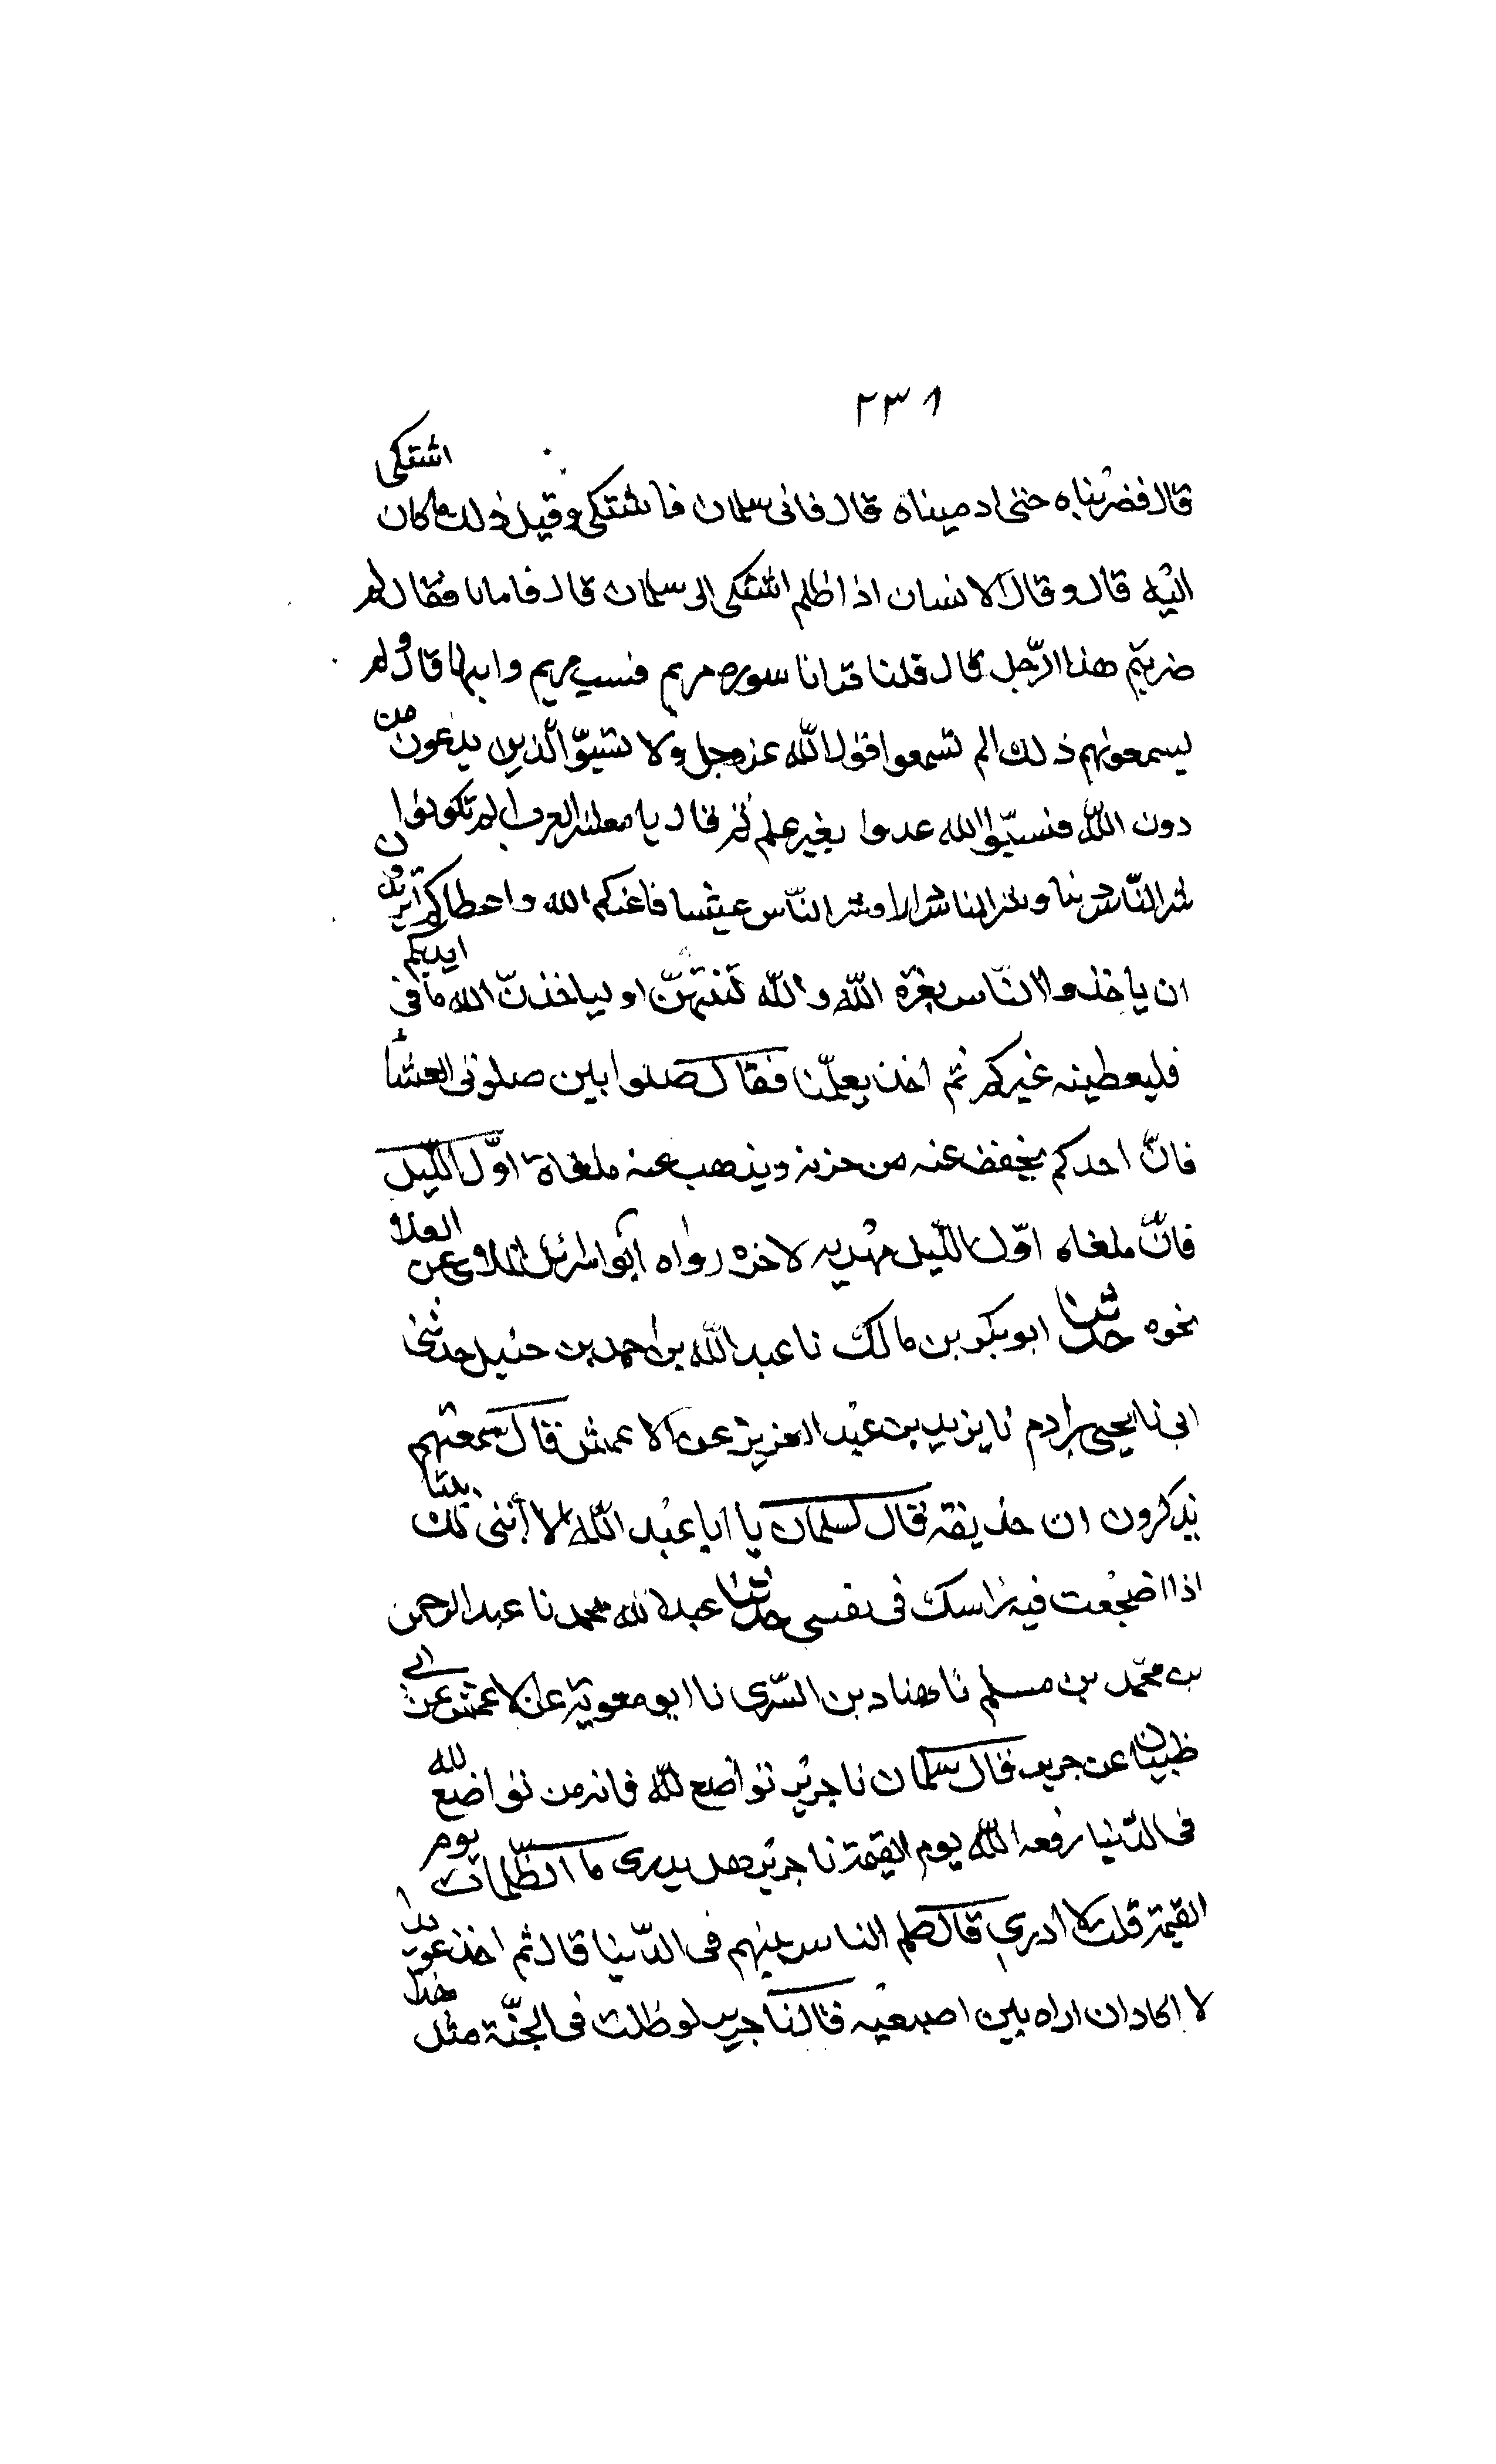 ٢٣٨
قال فضربناه حتى ادميناه قال فاتى سلمان فاشتكى وقيل ذلك ما كان اشتكى
اليه قال وقال الانسان اذا ظلم اشتكى الى سلمان قال فاتانا فقال لم
ضربتم هذا الرّجل قال قلنا قرانا سورة مريم فسب مريم وابنها قال ولم
يسمعونهم ذلك الم تسمعوا قول الله عز وجل ولا تسبوّا الّذين يدعون من
دون اللّه فيسبّوا الله عدوا بغير علم ثم قال يا معشر العرب الم تكونوا
شر النّاس دينا وشر الناس دارا وشر النّاس عيشا فاعزكم الله واعطاكم اتريدون
ان ياخذوا النّاس بعزة اللّه واللّه لتنتهنّ او لياخذنّ الله ما في ايديكم
فليعطينه غيركم ثم اخذ يعلّمنا فقال صلوا بين صلوتى العشا
فانّ احدكم يخفف عنه من حزبه ويذهب عنه ملغاة اوّل اللّيل
فانّ ملغاه اوّل اللّيل مهدمه لاخره رواه ابو اسرئل عن العلا
نحوه حدثنا ابو بكر بن مالك نا عبد اللّه بن احمد بن حنبل حدثنى
ابى نا يحيى بن ادم نا يزيد بن عبد العزيز عن الاعمش قال سمعتهم
يذكرون ان حذيفة قال لسلمان يا ابا عبد اللّه الا أبنى لك بيتا
اذا اضجعت فيه راسك فى نفسى حدثنا عبد الله محمد نا عبد الرحمن
بن محمّد بن مسلم نا هناد بن السّرى نا ابو معوية عن الاعمش عن ابى
ظبيان عن جرير قال سلمان نا جرير تواضع للّه فانه من تواضع لله
فى الدّنيا رفعه اللّه يوم القيمة نا جرير هل يدرى ما الظّلمات يوم
القيمة قلت لا أدرى قال ظلم الناس بينهم فى الدّنيا قال ثم اخذ عويدا
لا اكاد ان اراه بين اصبعيه قال نا جرير لو طلبت فى الجنّة مثل هذا